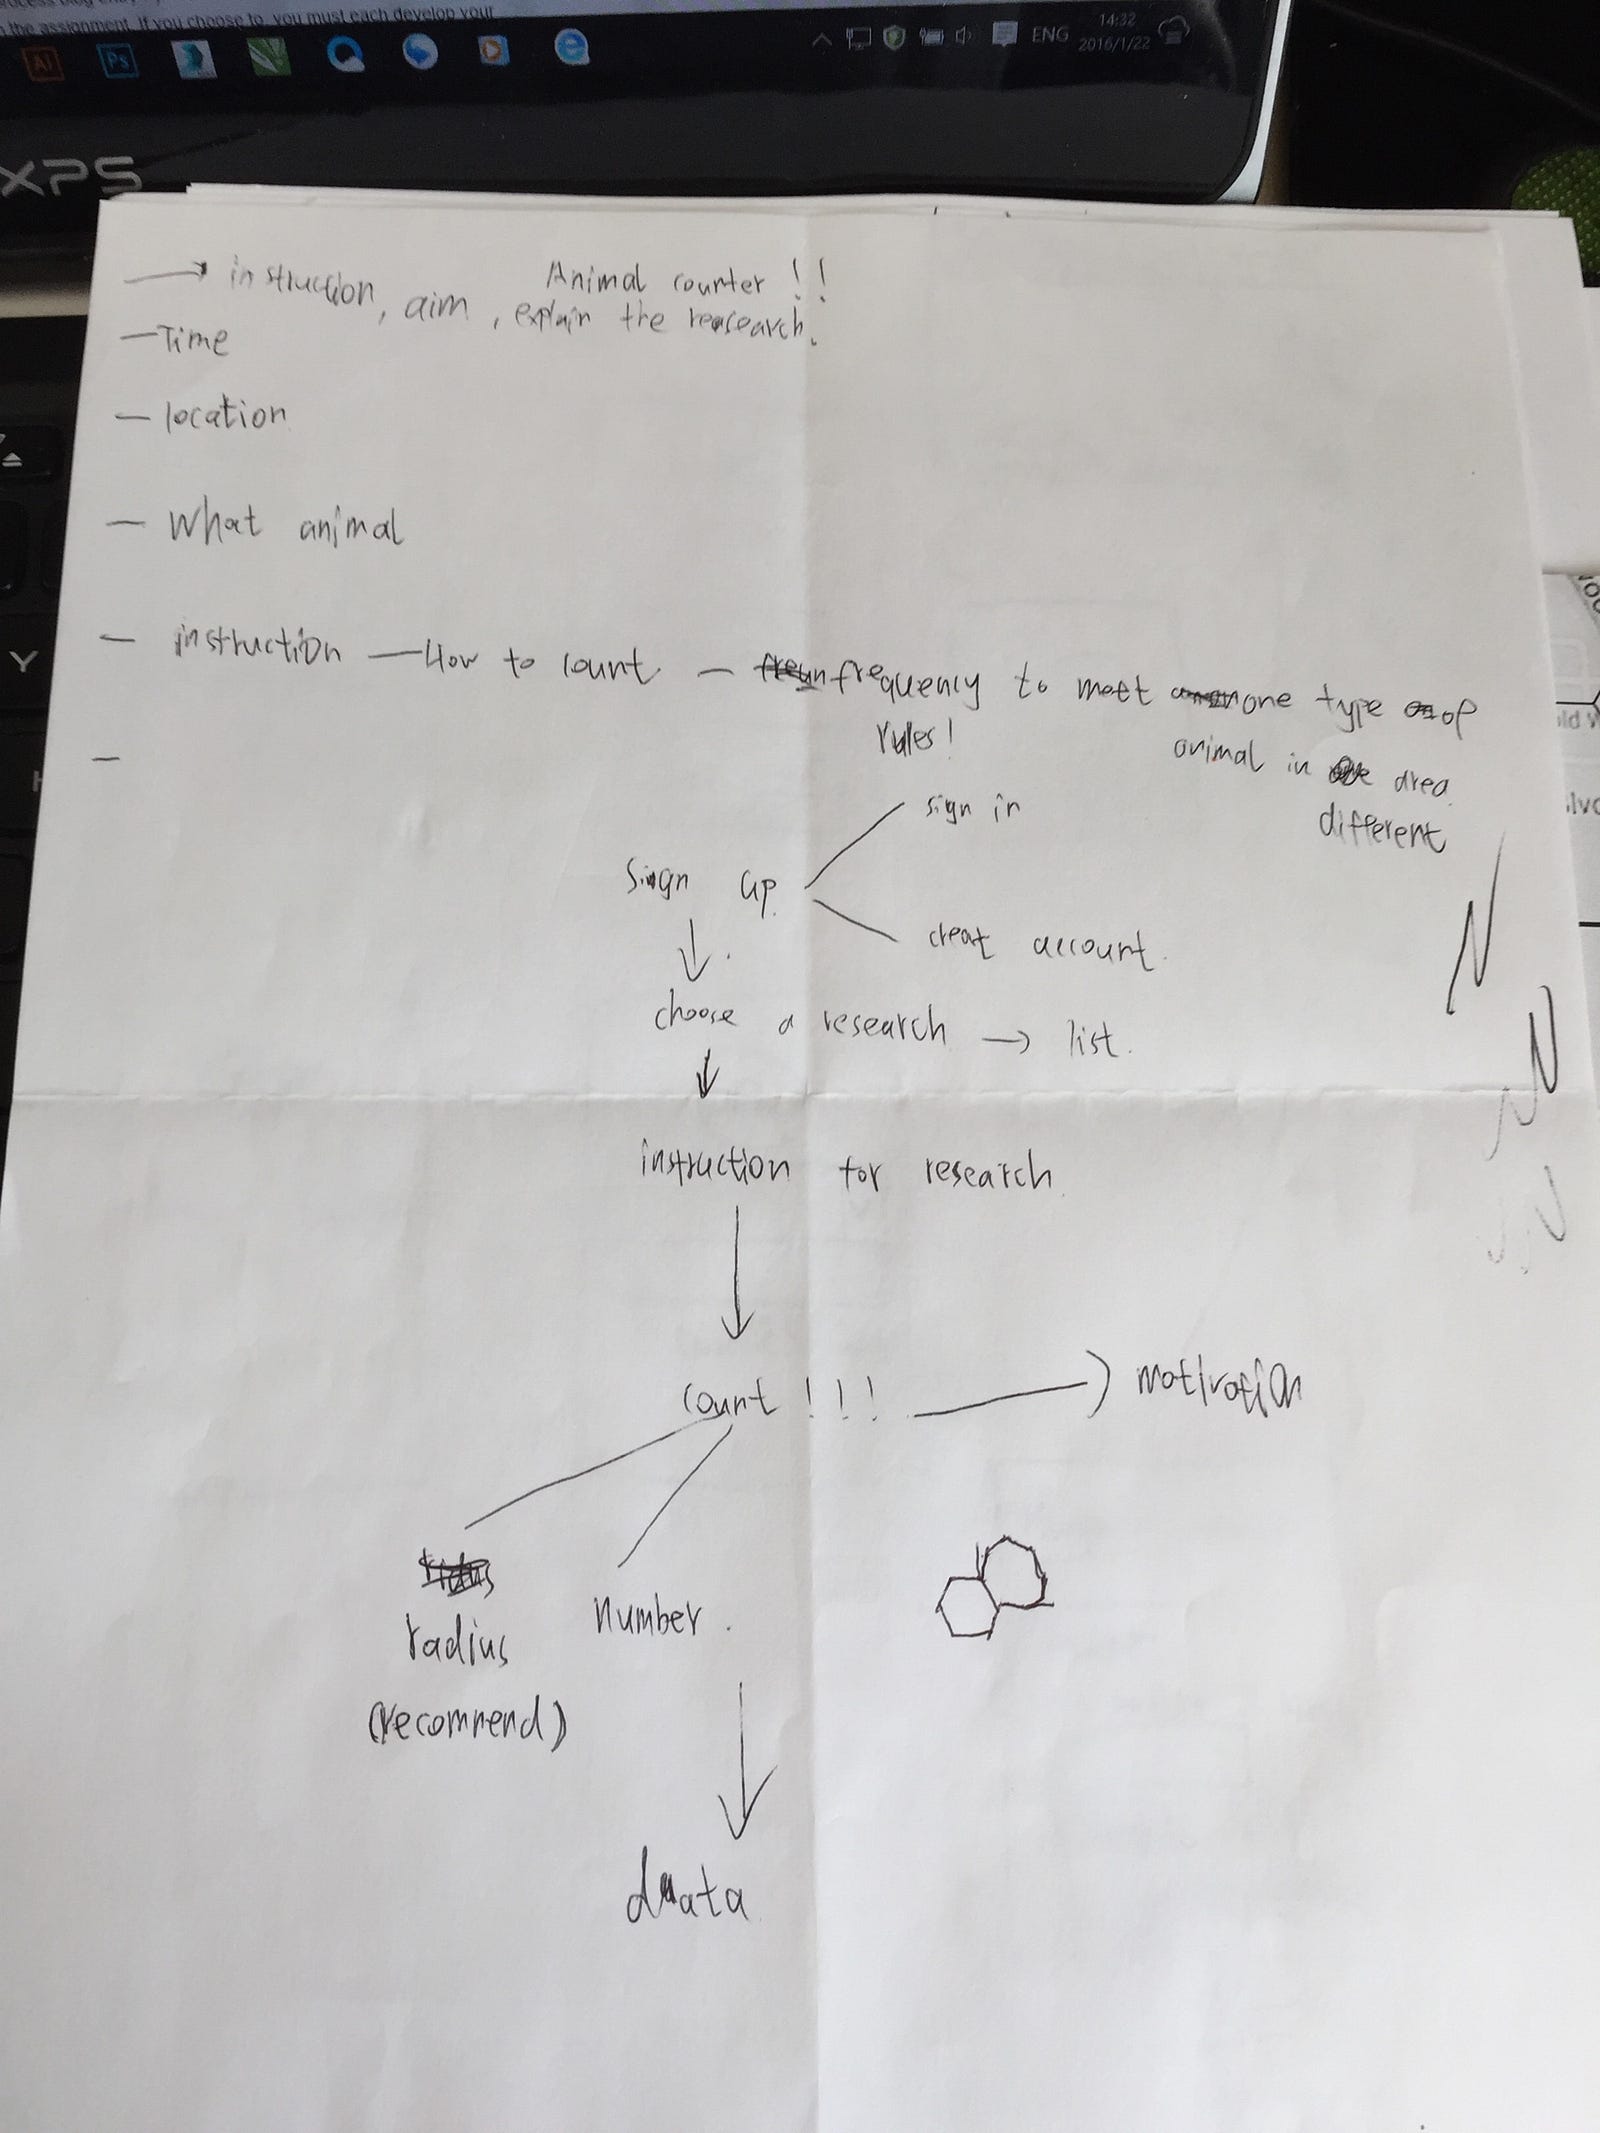 the assignment. If you choose to, you must each develop your
Ai
Ps
ENG
14:32
2016/1/22
XPS
Animal counter !!
→ instruction, aim, explain the reasearch.
— Time
— location
— What animal
— instruction — How to count — frequency to meet one type of
rules!
animal in area
different
sign in
Sign up
creat account.
choose a research → list.
instruction for research
Count !!! → motivation
radius
number.
(recommend)
data
Y